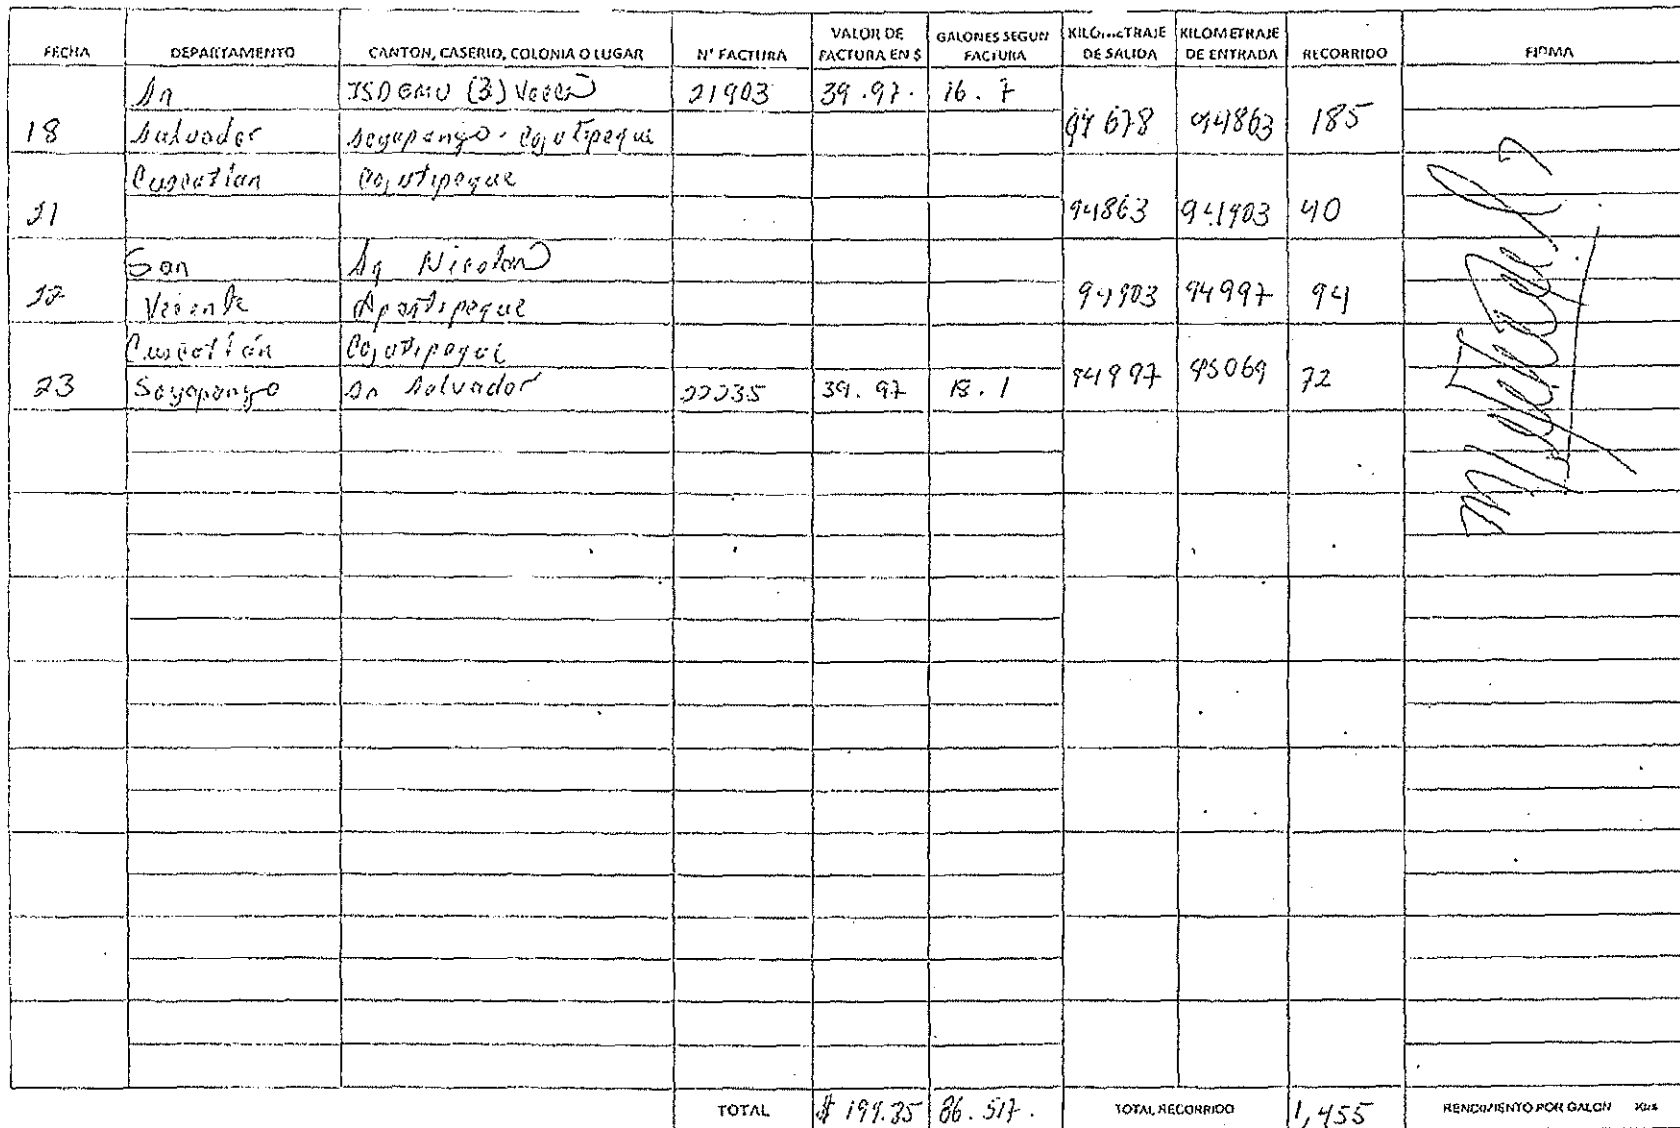 FECHA DEPARTAMENTO CANTON, CASERIO, COLONIA O LUGAR N° FACTURA VALOR DE FACTURA EN $ GALONES SEGUN FACTURA KILOMETRAJE DE SALIDA KILOMETRAJE DE ENTRADA RECORRIDO FIRMA
Sn ISDEMU (3) Veces 21903 39.97. 16.7
18 Salvador Soyapango - Cojutepeque 94678 94863 185
Cuscatlan Cojutepeque
21 94863 94903 40
San Sn Nicolas
22 Vicente Apastepeque 94903 94997 94
Cuscatlán Cojutepeque
23 Soyapango Sn Salvador 22235 39.97 18.1 94997 95069 72
TOTAL $ 199.35 86.517. TOTAL RECORRIDO 1,455 RENDIMIENTO POR GALON